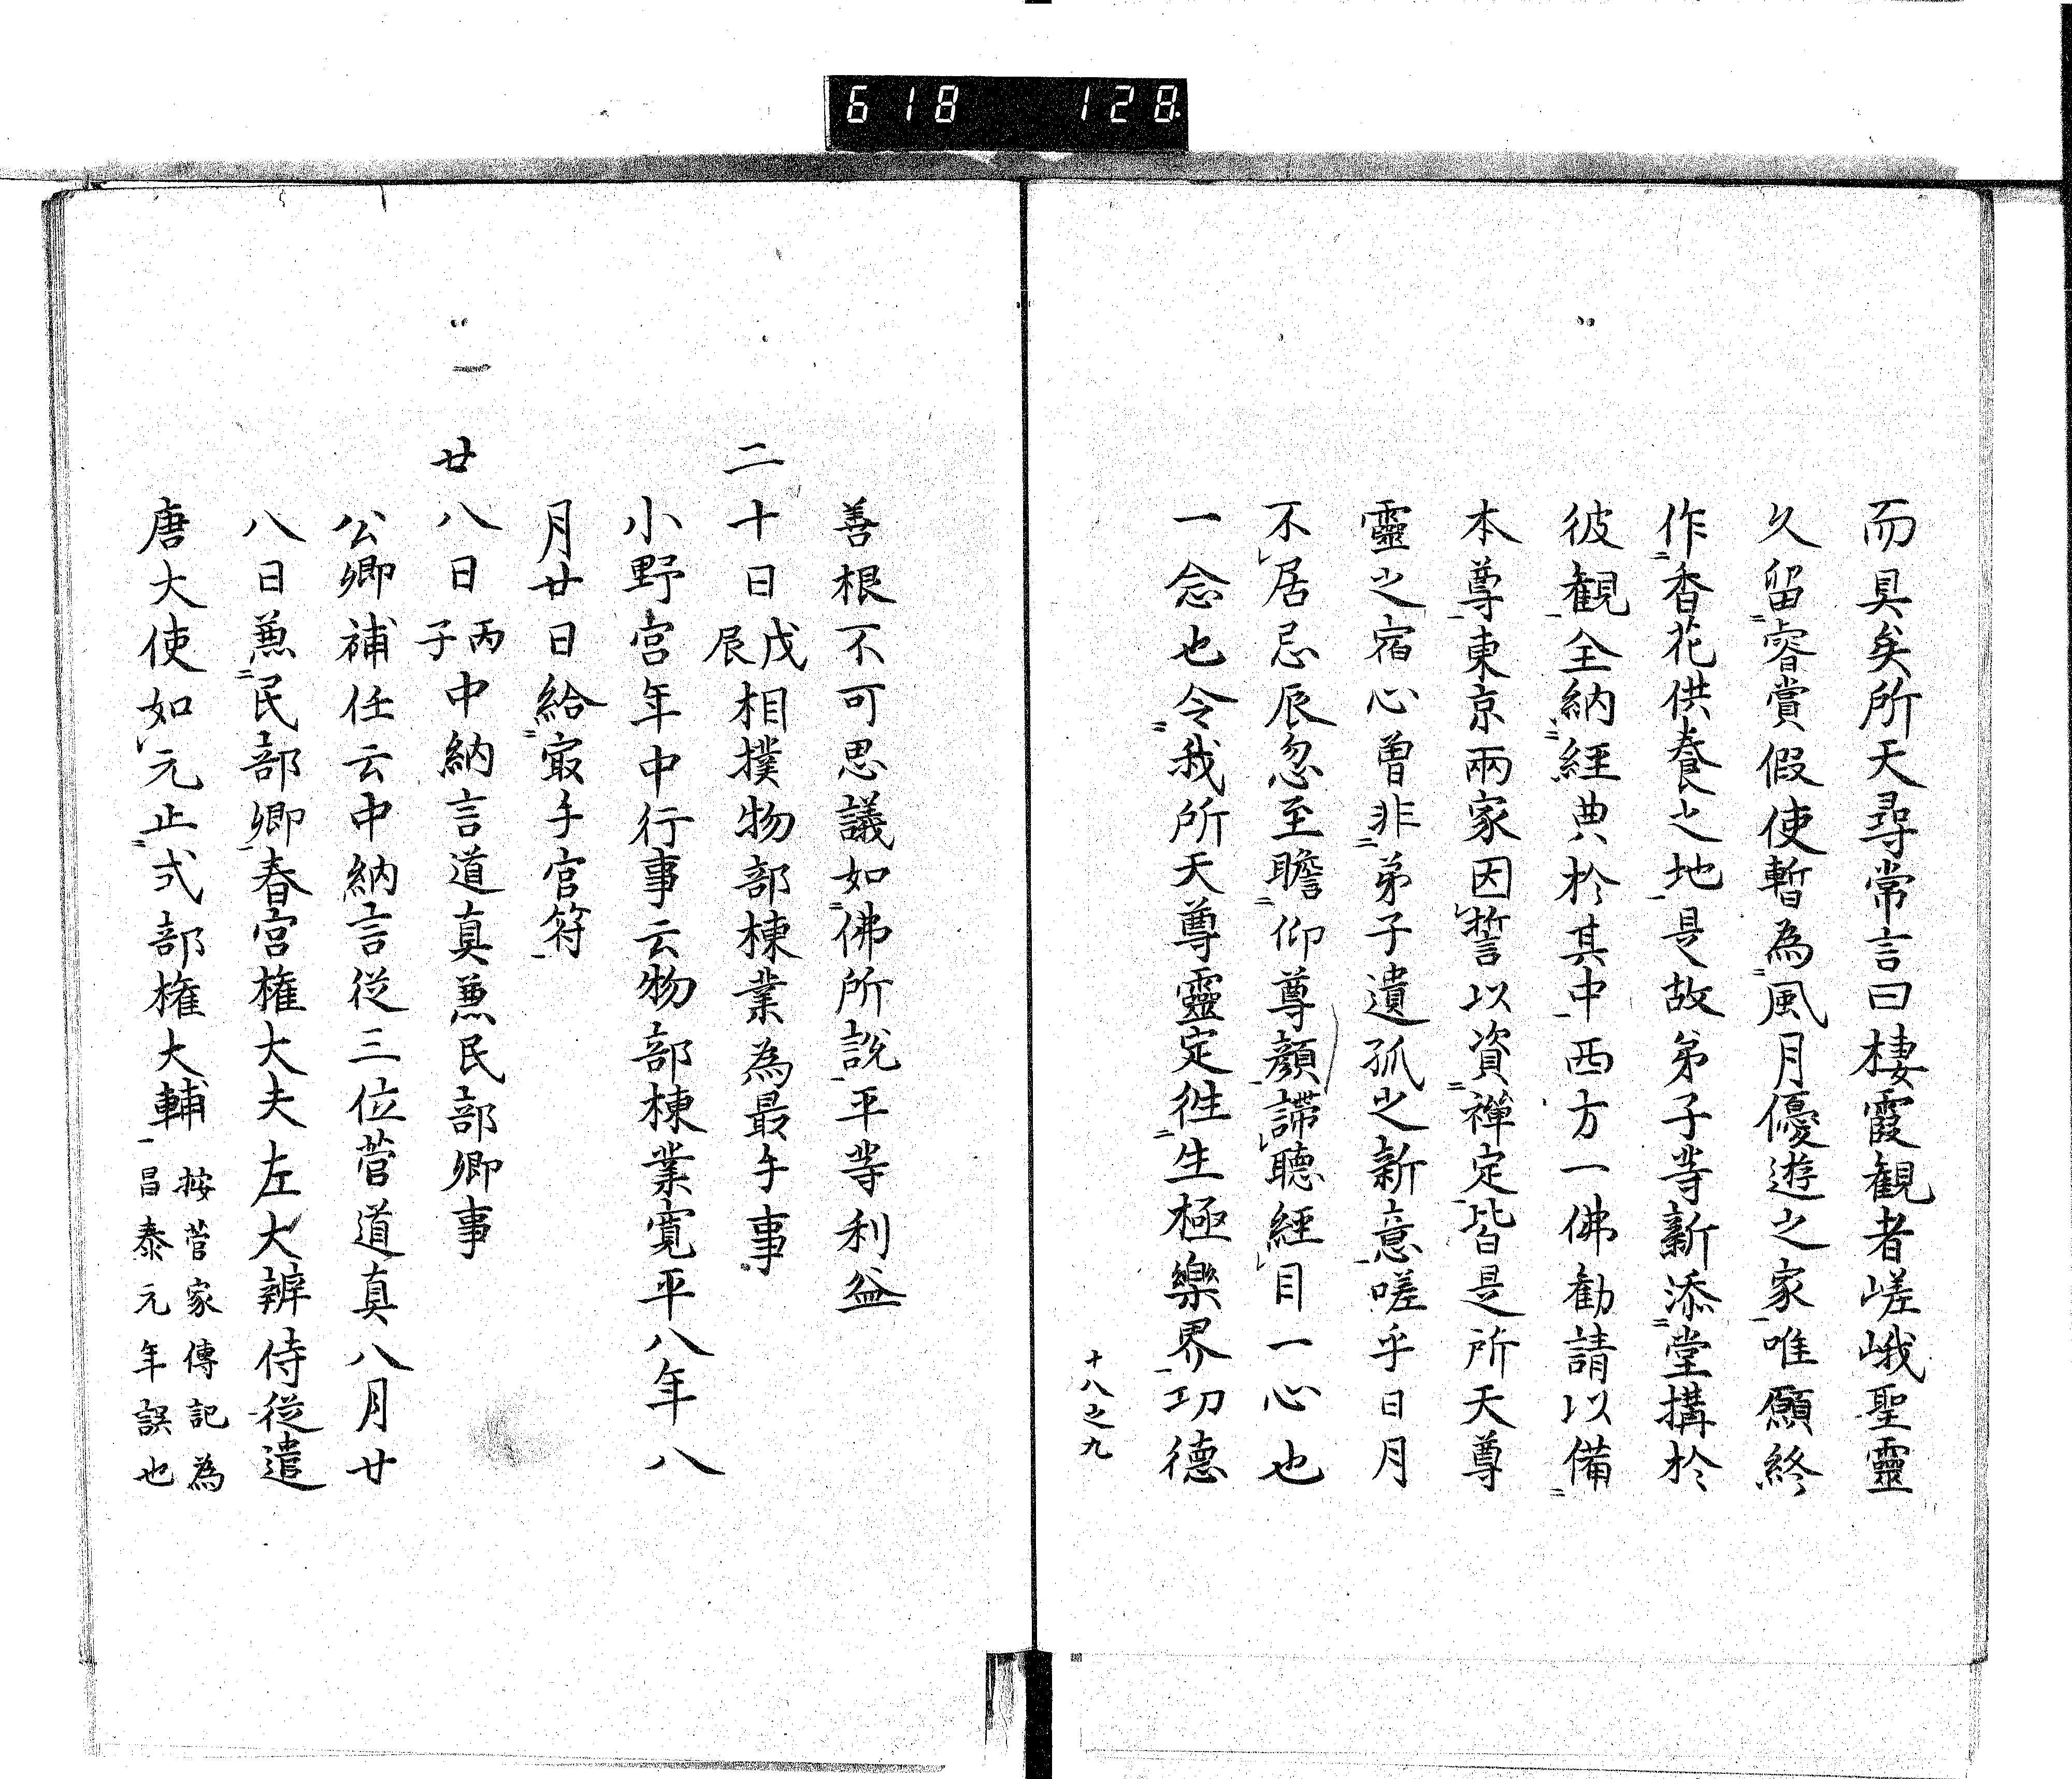 618 128
而具矣所天尋常言曰棲霞観者嵯峨聖靈
久留睿賞假使暫為風月優遊之家唯願終
作香花供養之地是故弟子等新添堂搆於
彼観全納経典於其中西方一佛勧請以備
本尊東京兩家因誓以資禪定皆是所天尊
靈之宿心曽非弟子遺孤之新意嗟乎日月
不居忌辰忽至瞻仰尊顔諦聴経目一心也
一念也令我所天尊靈定徃生極樂界功德
十八之九
善根不可思議如佛所説平等利益
二十日戊辰相撲物部棟業為最手事
小野宮年中行事云物部棟業寛平八年八
月廿日給㝡手官符
一廿八日丙子中納言道真兼民部卿事
公卿補任云中納言従三位菅道真八月廿
八日兼民部卿春宮権大夫左大辨侍従遣
唐大使如元止式部権大輔 按菅家傳記為
昌泰元年誤也